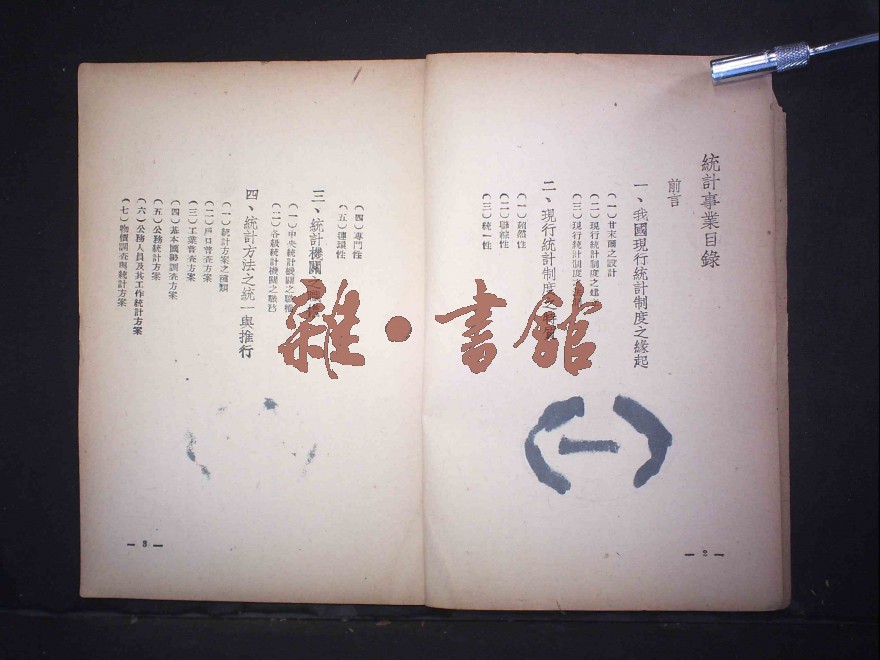 統計事業目錄
前言
一、我國現行統計制度之緣起
（一）甘末爾之設計
（二）現行統計制度之建
（三）現行統計制度之
二、現行統計制度之特
（一）超然性
（二）聯綜性
（三）統一性
— 2 —
（一）
（四）專門性
（五）連環性
三、統計機關之職掌
（一）中央統計機關之職權
（二）各級統計機關之職務
四、統計方法之統一與推行
（一）統計方案之種類
（二）戶口普查方案
（三）工業普查方案
（四）基本國勢調查方案
（五）公務統計方案
（六）公務人員及其工作統計方案
（七）物價調查與統計方案
— 3 —
雜·書館